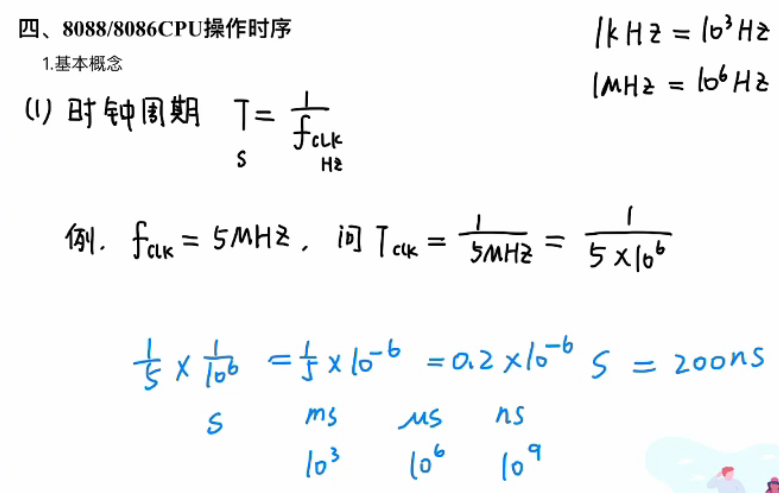 四、8088/8086CPU操作时序
1kHz = 10³Hz
1.基本概念
1MHz = 10⁶Hz
(1) 时钟周期 T = 1/fCLK
S Hz
例. fCLK = 5MHz, 问 Tclk = 1/5MHz = 1/5×10⁶
1/5 × 1/10⁶ = 1/5 × 10⁻⁶ = 0.2 × 10⁻⁶ S = 200ns
S ms μs ns
10³ 10⁶ 10⁹